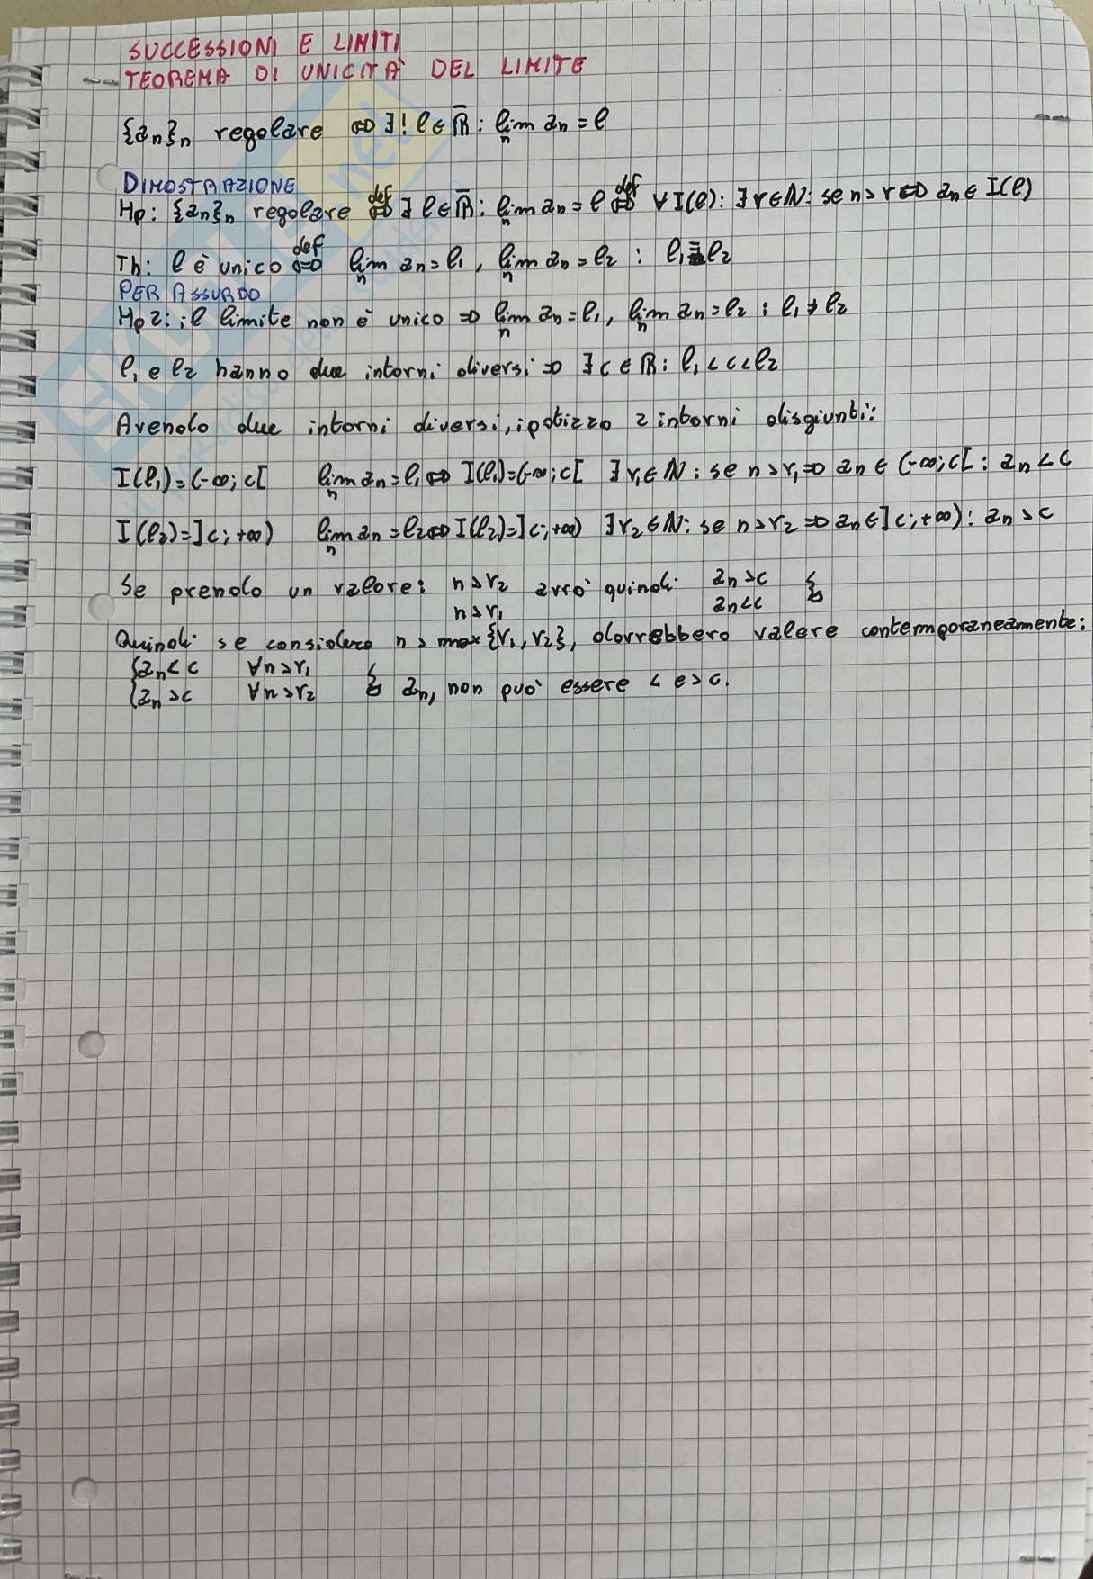 SUCCESSIONI E LIMITI
TEOREMA DI UNICITÀ DEL LIMITE
{an}n regolare ⇔ ∃! ℓ ∈ R̅ : lim n an = ℓ
DIMOSTRAZIONE
Hp: {an}n regolare def ⇔ ∃ ℓ ∈ R̅ : lim n an = ℓ def ⇔ ∀ I(ℓ) : ∃ r ∈ N : se n > r ⇒ an ∈ I(ℓ)
Th: ℓ è unico def ⇔ lim n an = ℓ1 , lim n an = ℓ2 : ℓ1 = ℓ2
PER ASSURDO
Hp2: il limite non è unico ⇒ lim n an = ℓ1, lim n an = ℓ2 : ℓ1 ≠ ℓ2
ℓ1 e ℓ2 hanno due intorni diversi ⇒ ∃ c ∈ R : ℓ1 < c < ℓ2
Avendo due intorni diversi, ipotizzo 2 intorni disgiunti:
I(ℓ1) = (-∞; c[ lim n an = ℓ1 ⇔ I(ℓ1) = (-∞; c[ ∃ r1 ∈ N : se n > r1 ⇒ an ∈ (-∞; c[ : an < c
I(ℓ2) = ]c; +∞) lim n an = ℓ2 ⇔ I(ℓ2) = ]c; +∞) ∃ r2 ∈ N : se n > r2 ⇒ an ∈ ]c; +∞) : an > c
Se prendo un valore: n > r2 avrò quindi: an > c
n > r1 an < c
Quindi se considero n > max{r1, r2}, dovrebbero valere contemporaneamente:
{an < c ∀n > r1
{an > c ∀n > r2 an, non può essere < e > c.